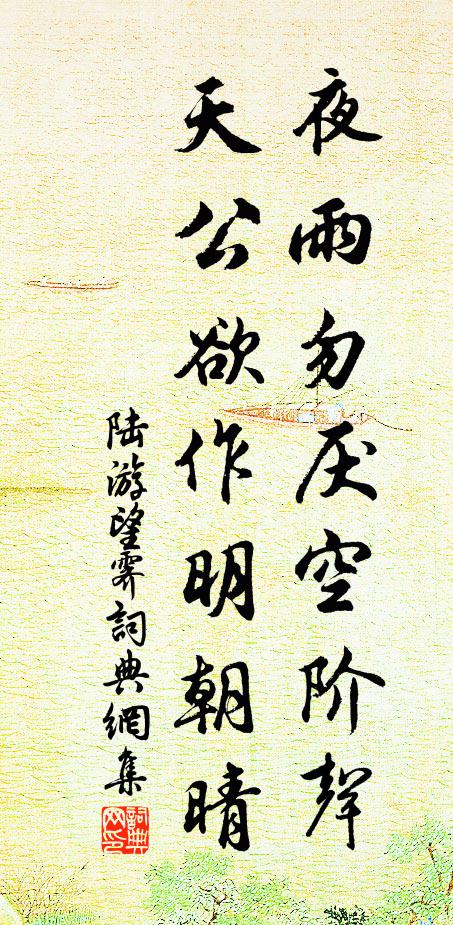 夜雨勿厌空阶聲
天公欲作明朝晴
陆游望霽詞典網集
詞典网印